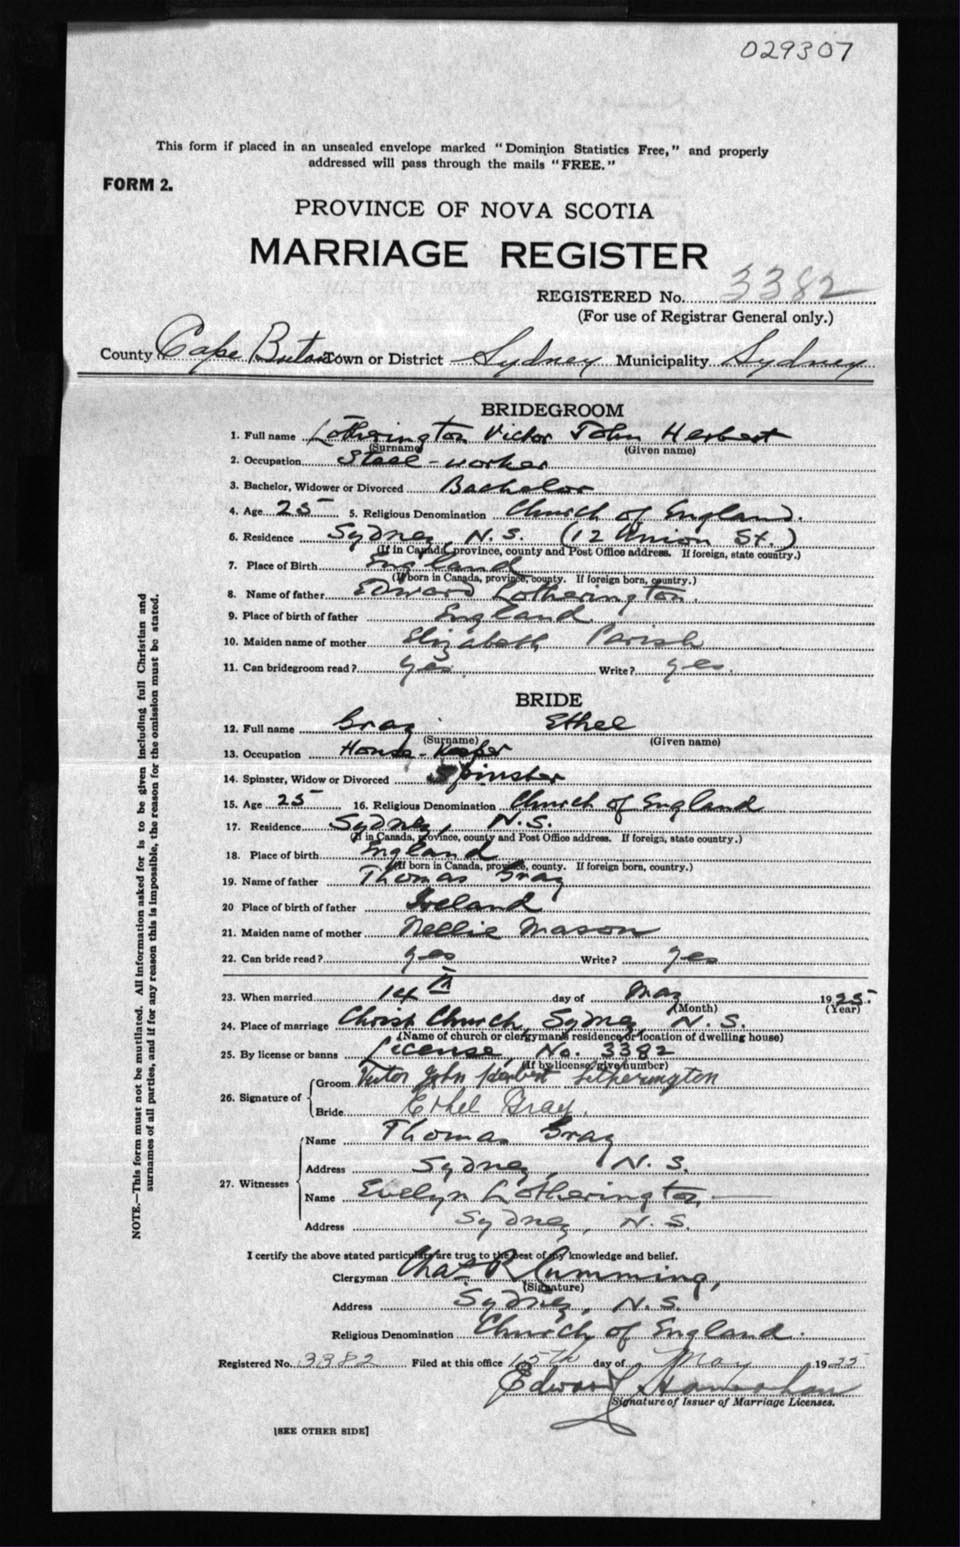 029307
This form if placed in an unsealed envelope marked "Dominion Statistics Free," and properly
addressed will pass through the mails "FREE."
FORM 2.
PROVINCE OF NOVA SCOTIA
MARRIAGE REGISTER
REGISTERED No. 3382
(For use of Registrar General only.)
County Cape Breton Town or District Sydney Municipality Sydney
BRIDEGROOM
1. Full name Lotherington Victor John Herbert
(Surname) (Given name)
2. Occupation Steel-worker
3. Bachelor, Widower or Divorced Bachelor
4. Age 25 5. Religious Denomination Church of England.
6. Residence Sydney N.S. (12 Union St.)
(If in Canada, province, county and Post Office address. If foreign, state country.)
7. Place of Birth England
(If born in Canada, province, county. If foreign born, country.)
8. Name of father Edward Lotherington.
9. Place of birth of father England
10. Maiden name of mother Elizabeth Parish
11. Can bridegroom read? yes. Write? yes.
BRIDE
12. Full name Gray Ethel
(Surname) (Given name)
13. Occupation House-Keeper
14. Spinster, Widow or Divorced Spinster
15. Age 25 16. Religious Denomination Church of England
17. Residence Sydney, N.S.
(If in Canada, province, county and Post Office address. If foreign, state country.)
18. Place of birth England
(If born in Canada, province, county. If foreign born, country.)
19. Name of father Thomas Gray
20 Place of birth of father Ireland
21. Maiden name of mother Nellie Mason
22. Can bride read? yes Write? yes
23. When married 14th day of May 1925
(Month) (Year)
24. Place of marriage Christ Church, Sydney, N.S.
(Name of church or clergyman's residence or location of dwelling house)
25. By license or banns License, No. 3382
(If by license, give number)
26. Signature of
Groom Victor John Herbert Lotherington
Bride Ethel Gray.
27. Witnesses
Name Thomas Gray
Address Sydney, N.S.
Name Evelyn Lotherington,
Address Sydney, N.S.
I certify the above stated particulars are true to the best of my knowledge and belief.
Clergyman Chas R Cumming,
(Signature)
Address Sydney, N.S.
Religious Denomination Church of England.
Registered No. 3382 Filed at this office 15th day of May 1925
Edward
Signature of Issuer of Marriage Licenses.
[SEE OTHER SIDE]
NOTE.—This form must not be mutilated. All information asked for is to be given including full Christian and
surnames of all parties, and if for any reason this is impossible, the reason for the omission must be stated.